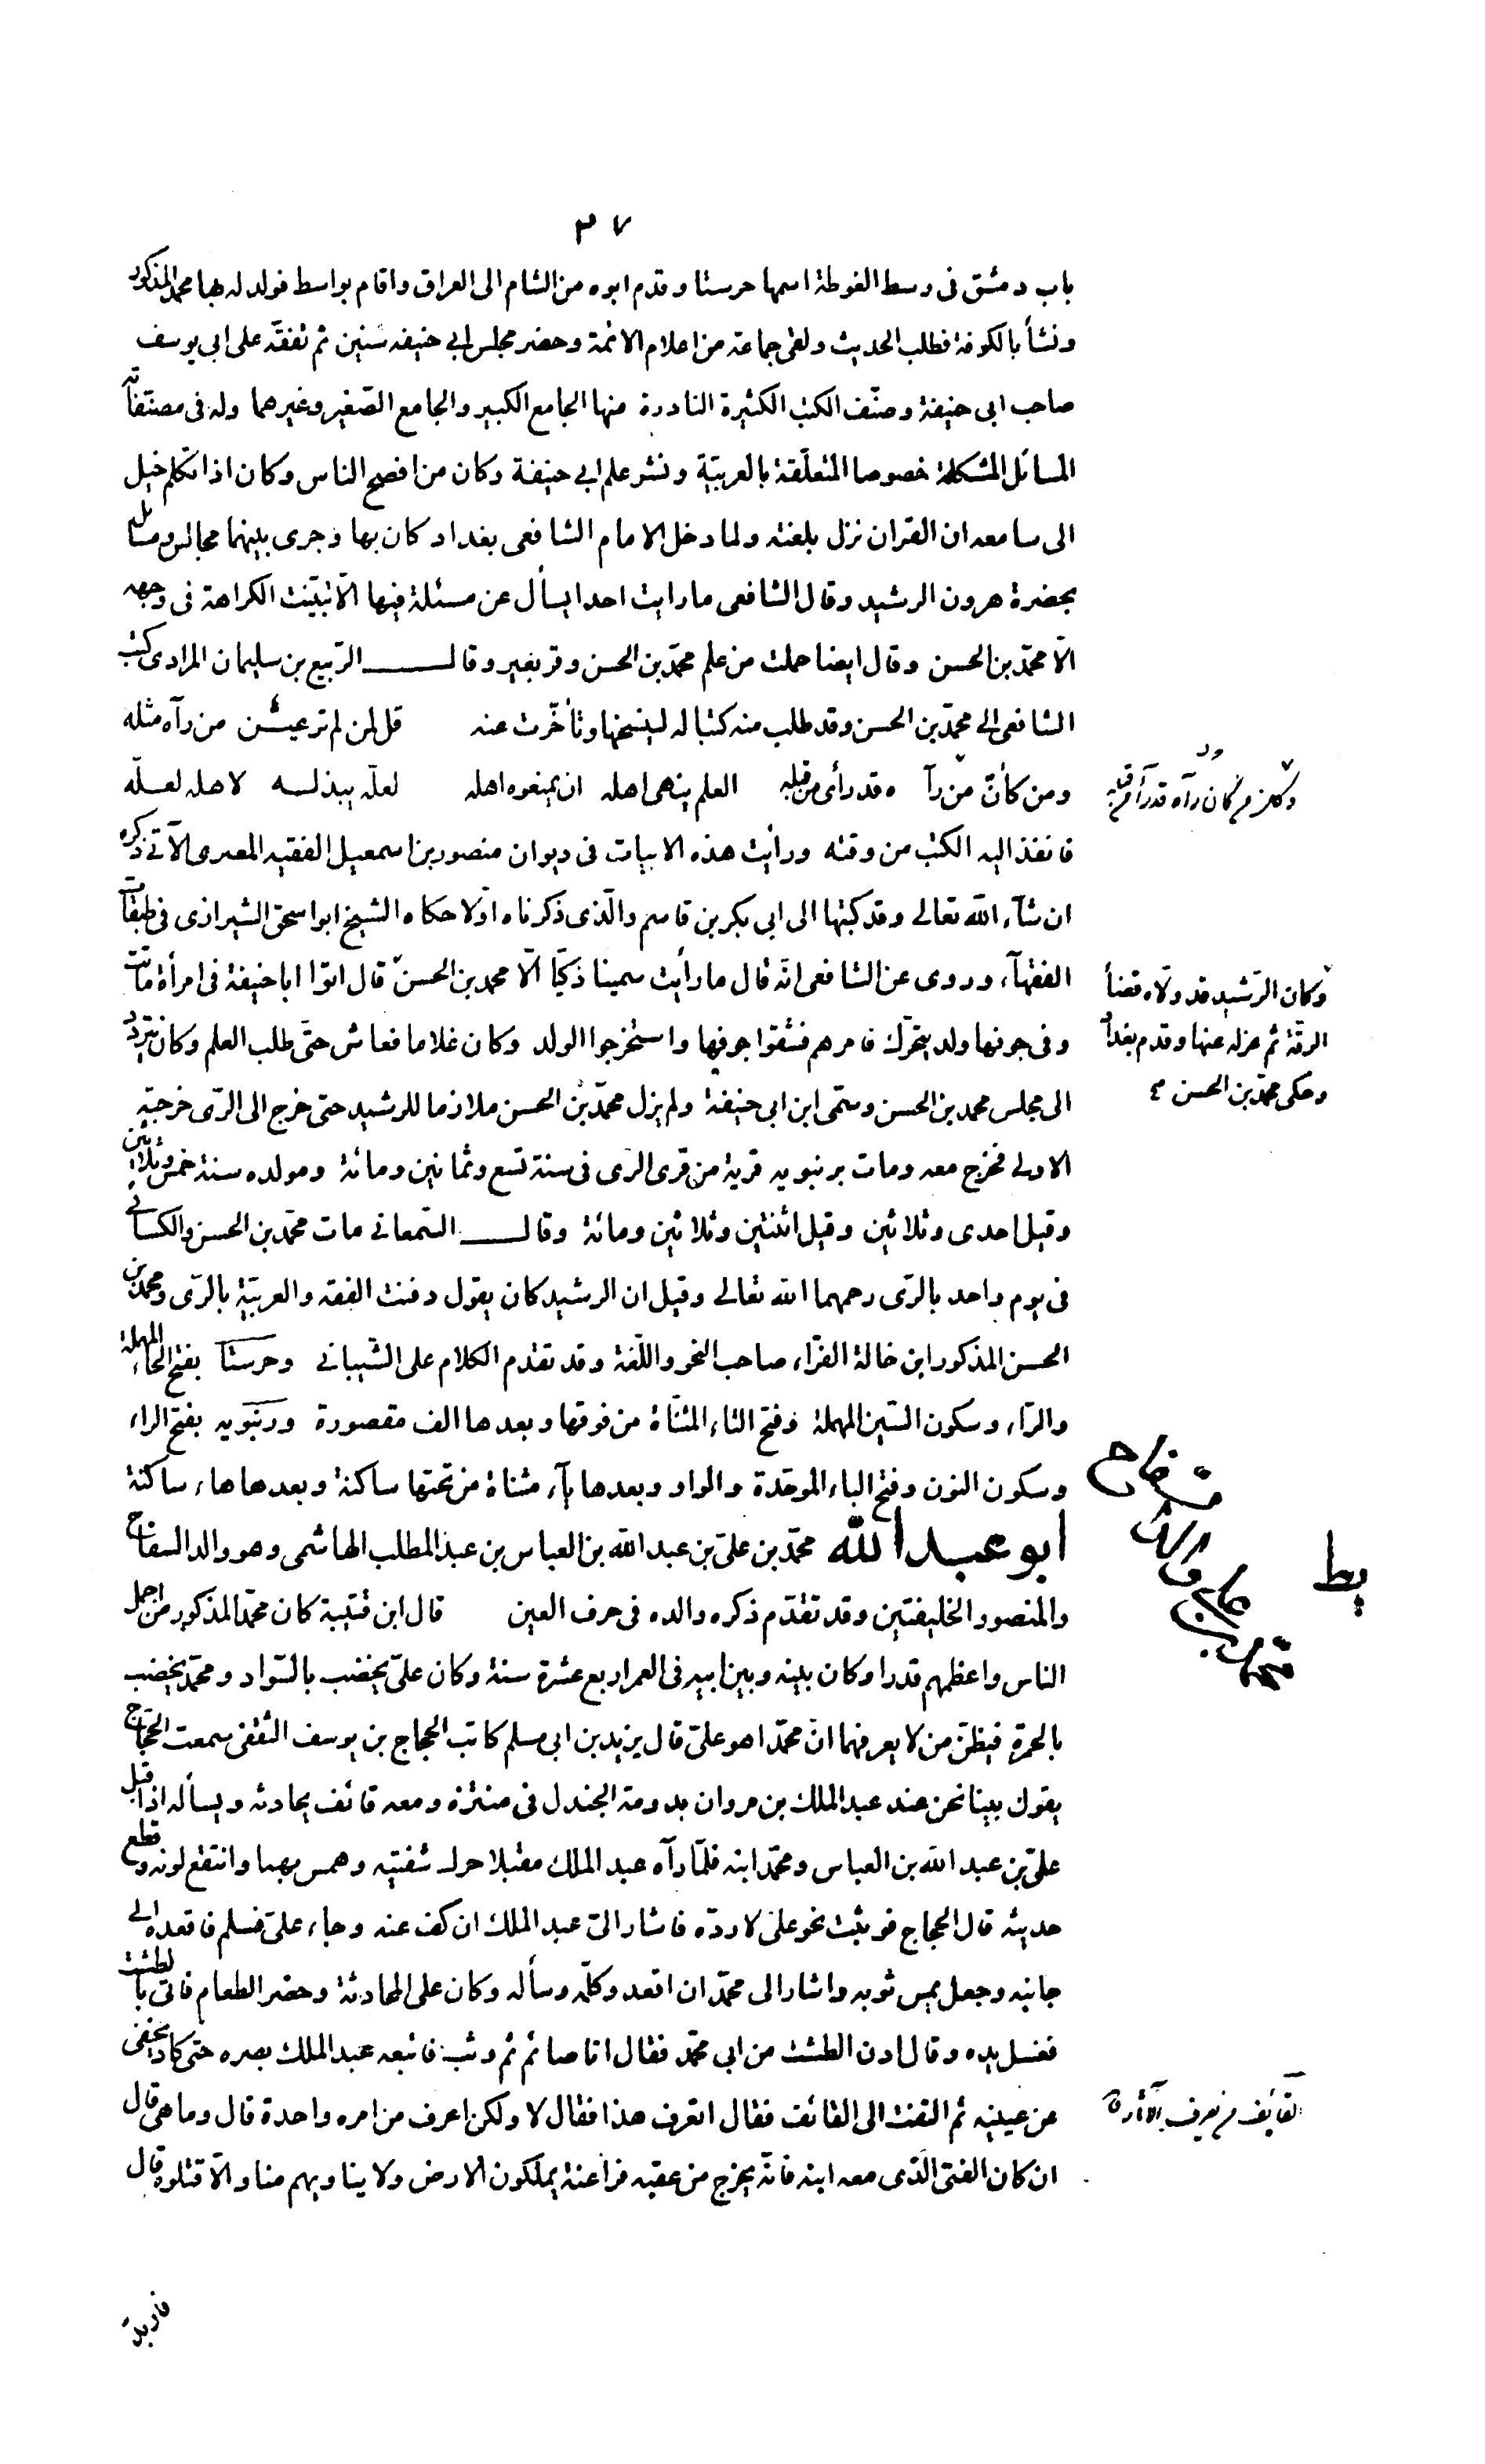 ٣٧
باب دمشق فى وسط الغوطة اسمها حرستا وقدم ابوه من الشام الى العراق واقام بواسط فولد له بها محمد المذكور
ونشأ بالكوفة فطلب الحديث ولقى جماعة من اعلام الائمة وحضر مجلس ابي حنيفه سنين ثم تفقّه على ابى يوسف
صاحب ابى حنيفة وصنّف الكتب الكثيرة النادرة منها الجامع الكبير والجامع الصّغير وغيرهما وله فى مصنّفاته
المسائل المشكلة خصوصا المتعلّقة بالعربيّة ونشر علم ابي حنيفة وكان من افصح الناس وكان اذا تكلم خيل
الى سامعه ان القران نزل بلغته ولما دخل الامام الشافعى بغداد كان بها وجرى بينهما مجالس ومسائل
بحضرة هرون الرشيد وقال الشافعى ما رايت احدا يسأل عن مسئلة فيها الّا تبيّنت الكراهة فى وجهه
الّا محمّد بن الحسن وقال ايضا حملت من علم محمّد بن الحسن وقر بعير وقال الرّبيع بن سليمان المرادى كتب
الشافعى الي محمّد بن الحسن وقد طلب منه كتبا له لينسخها وتأخّرت عنه قل لمن لم تر عيـن من رآه مثله
ومن كأنّ من رآه قد رأى من قبله العلم ينهى اهله ان يمنعوه اهله لعلّه يبذلـه لاهله لعـلّه
وكان من رآه قد رأى من قبله
فانفذ اليه الكتب من وقته ورأيت هذه الابيات فى ديوان منصور بن اسمعيل الفقيه المصرى الآتي ذكره
ان شآء الله تعالى وقد كتبها الى ابى بكر بن قاسم والّذى ذكرناه اوّلا حكاه الشيخ ابو اسحق الشيرازى فى طبقات
الفقهآء وروى عن الشافعى انّه قال ما رأيت سمينا ذكيّا الّا محمد بن الحسن قال اتوا ابا حنيفة فى امرأة ماتت
وكان الرّشيد قد ولّاه قضأ
الرقّة ثم عزله عنها وقدم بغداد
وحكى محمّد بن الحسن
وفى جوفها ولد يتحرّك فامرهم فشقوا جوفها واستخرجوا الولد وكان غلاما فعاش حتّى طلب العلم وكان يتردّد
الى مجلس محمد بن الحسن وسمّى ابن ابى حنيفة ولم يزل محمّد بن الحسن ملازما للرشيد حتى خرج الى الرّى خرجته
الاولي فخرج معه ومات برنبويه قرية من قرى الرّى فى سنة تسع وثمانين ومائة ومولده سنة خمس وثلاثين
وقيل احدى وثلاثين وقيل اثنتين وثلاثين ومائة وقال السّمعاني مات محمّد بن الحسن والكسائي
فى يوم واحد بالرّى رحمهما الله تعالى وقيل ان الرشيد كان يقول دفنت الفقه والعربيّة بالرّى ومحمد بن
الحسن المذكور ابن خالة الفرّاء صاحب النحو واللّغة وقد تقدم الكلام على الشّيباني وحرستا بفتح الحاء المهملة
والرّاء وسكون السّين المهملة وفتح التاء المثنّاة من فوقها وبعدها الف مقصورة ورنبويه بفتح الراء
وسكون النون وفتح الباء الموحّدة والواو وبعدها يآء مثناة من تحتها ساكنة وبعدها هاء ساكنة
ابو عبد الله محمّد بن علىّ بن عبد الله بن العباس بن عبد المطلب الهاشمى وهو والد السفاح
محمد بن على والد السفاح
يط
والمنصور الخليفتين وقد تقدّم ذكره والده فى حرف العين قال ابن قتيبة كان محمّد المذكور من اجمل
الناس واعظمهم قدرا وكان بينه وبين ابيه فى العمر اربع عشرة سنة وكان علىّ يخضب بالسّواد ومحمّد يخضب
بالحمرة فيظنّ من لا يعرفهما انّ محمّدا هو علىّ قال يزيد بن ابى مسلم كاتب الحجاج بن يوسف الثقفى سمعت الحجّاج
يقول بينا نحن عند عبد الملك بن مروان بدومة الجندل فى منتزه ومعه قائف يحادثه ويسأله اذ اقبل
علىّ بن عبد الله بن العباس ومحمّد ابنه فلمّا رآه عبد الملك مقبلا حرك شفتيه وهمس بهما وانتقع لونه وقطع
حديثه قال الحجاج فوثبت نحو علىّ لاردّه فاشار الىّ عبد الملك ان كف عنه وجاء علىّ فسلم فاقعده الى
جانبه وجعل يمس ثوبه واشار الى محمّد ان اقعد وكلّمه وسأله وكان على المحادثة وحضر الطعام فاتى بالطشت
فغسل يده وقال ادن الطشت من ابى محمّد فقال انا صائم ثم وثب فاتبعه عبد الملك بصره حتى كاد يخفى
عن عينيه ثم التفت الى القائف فقال اتعرف هذا فقال لا ولكن اعرف من امره واحدة قال وما هى قال
القائف من يعرف الآثار
ان كان الفتى الّذى معه ابنه فانّه يخرج من عقبه فراعنة يملكون الارض ولا يناويهم مناو الّا قتلوه قال